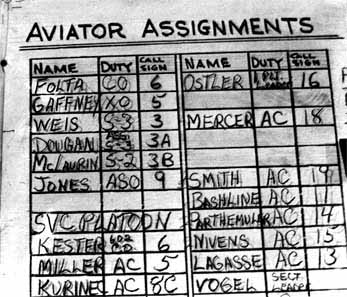 AVIATOR ASSIGNMENTS
NAME DUTY CALL SIGN
FOLTA CO 6
GAFFNEY XO 5
WEIS S-3 3
DOUGAN ASST S-3 3A
McLAURIN S-2 3B
JONES ASO 9
SVC. PLATOON
KESTER 6
MILLER AC 5
KURINEC AC 8C
NAME DUTY CALL SIGN
OSTLER 16
MERCER AC 18
SMITH AC 19
BASHLINE AC 11
PARTHEMULAR AC 14
NIVENS AC 15
LAGASSE AC 13
VOGEL SECT LEADER